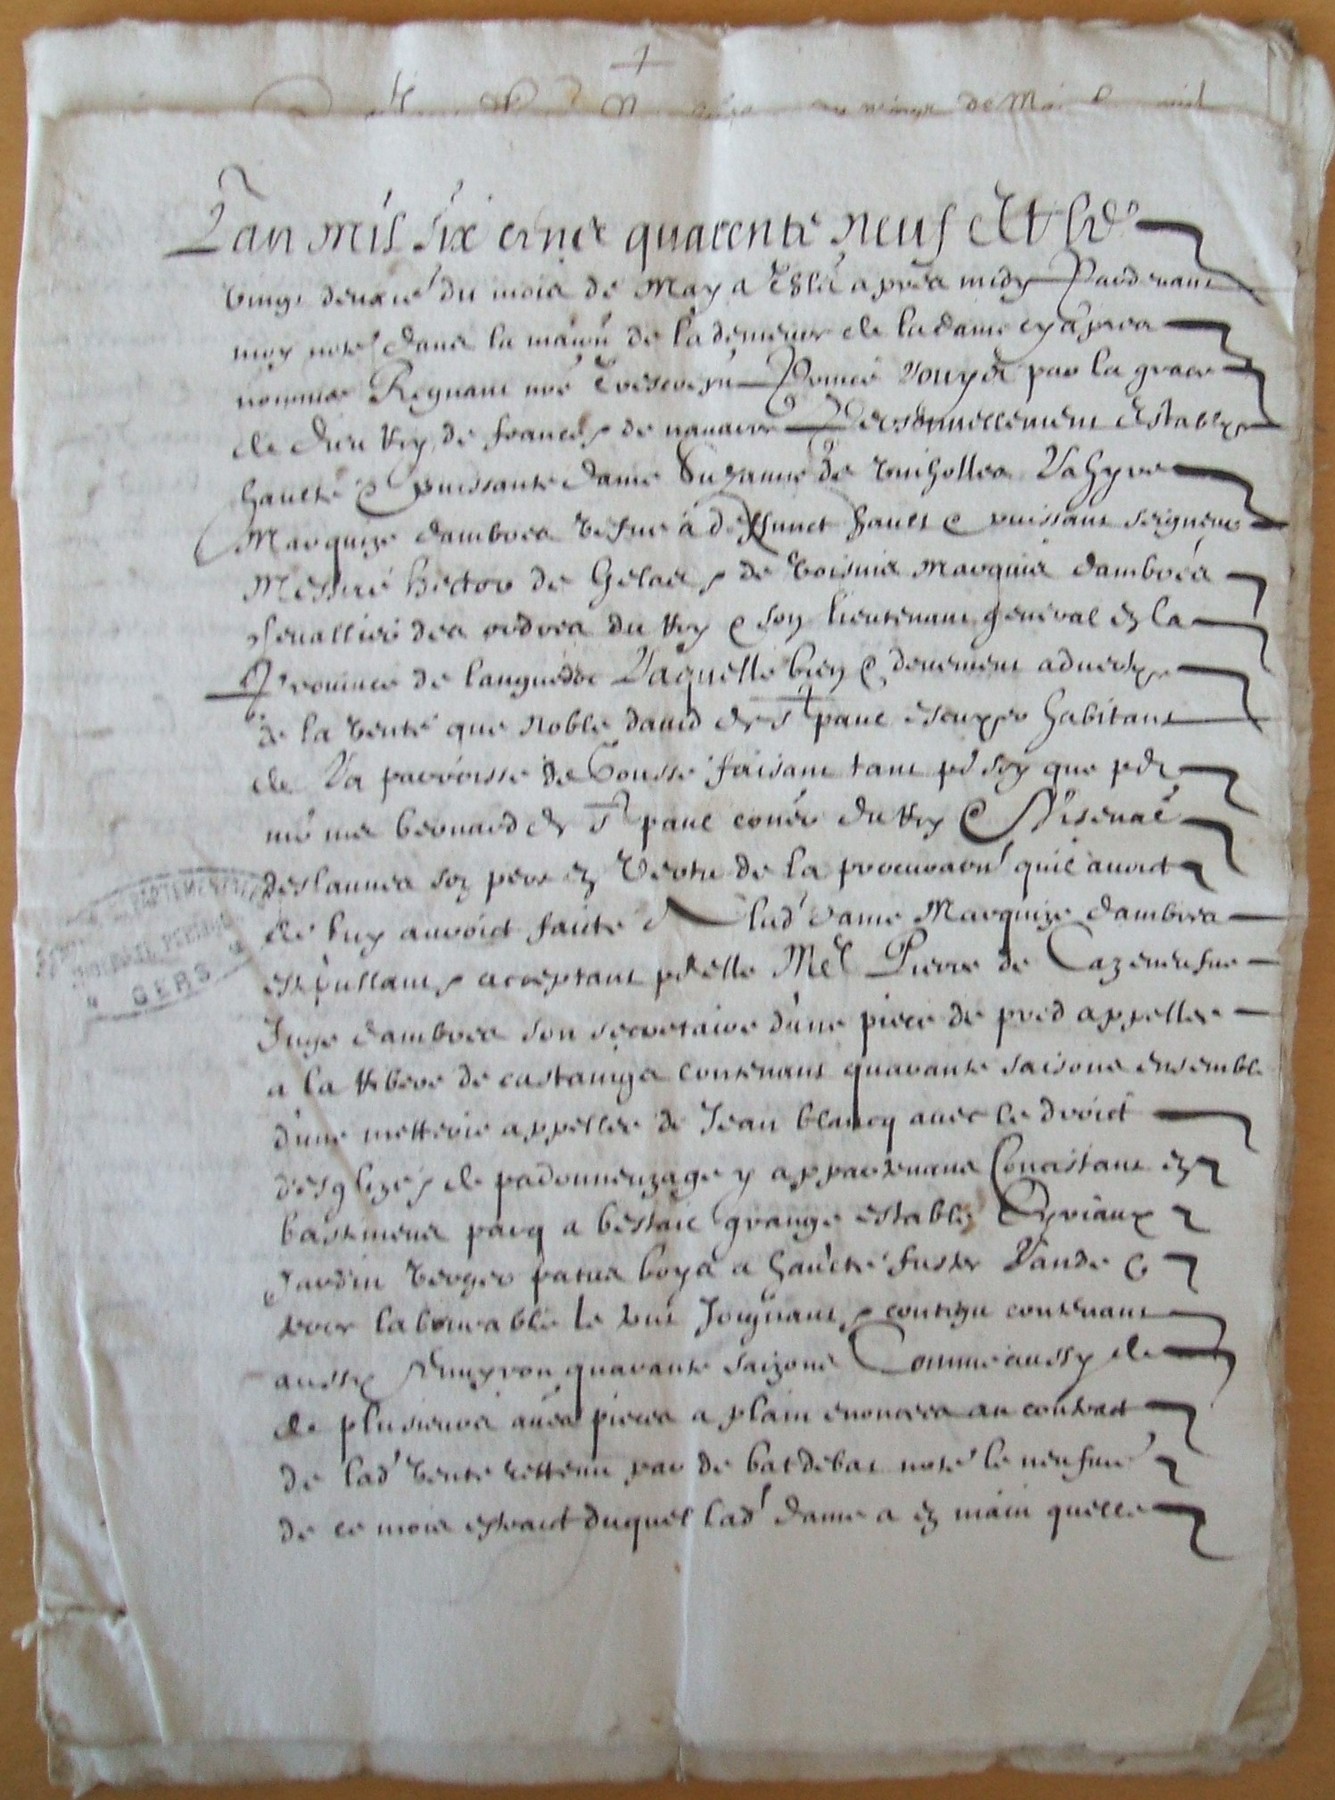 de Mai
Lan mil six cens quarente neuf Et le
vingt deuxie' du mois de May a apres midy Pardevant
moy note' dans la maison de la demeure de la dame cy apres
nommee Regnant nre Prince Louys par la grace
de dieu Roy de france & de navarre Personnellement establye
haulte & puissante dame Suzanne de Vahyre
Marquize dambres vefue à deffunct hault & puissant seigneur
Messire hector de Gelas & de voisins marquis dambres
chevallier des ordres du Roy & son lieutenant general en la
Province de languedoc Laquelle bien & deuement advertye
de la vente que Noble david de St paul escuyer habitant
de La parroisse de Gousse faisant tant pr soy que pr
me bernard de St paul coner du Roy &
deslannes son pere en Vertu de la procuraon quil avoit
de luy avoict faite A lad' dame Marquize dambres
estipullant & acceptant pr elle Me Pierre de Cazeneufue
Juge dambres son secretaire dune piece de pred appellee
a la Ribere de castainga contenant quarante saisons ensemble
dune metterie appellee de Jean blancq avec le droict
desglize & de padouneuzage y appartenant Concistant en
bastimens parcq a bestail grange estable
Jardin verger patus boys a haulte fustee Lande &
terre labourable le tout Joignant & contigu contenant
aussy Environ quarante saizons Comme aussy de
de plusieurs aues pieces a plain enoncees au contract
de lad' vente rettenu par de batdebat note' le neufme'
de ce mois extraict duquel lad' dame a en main quelle
GERS